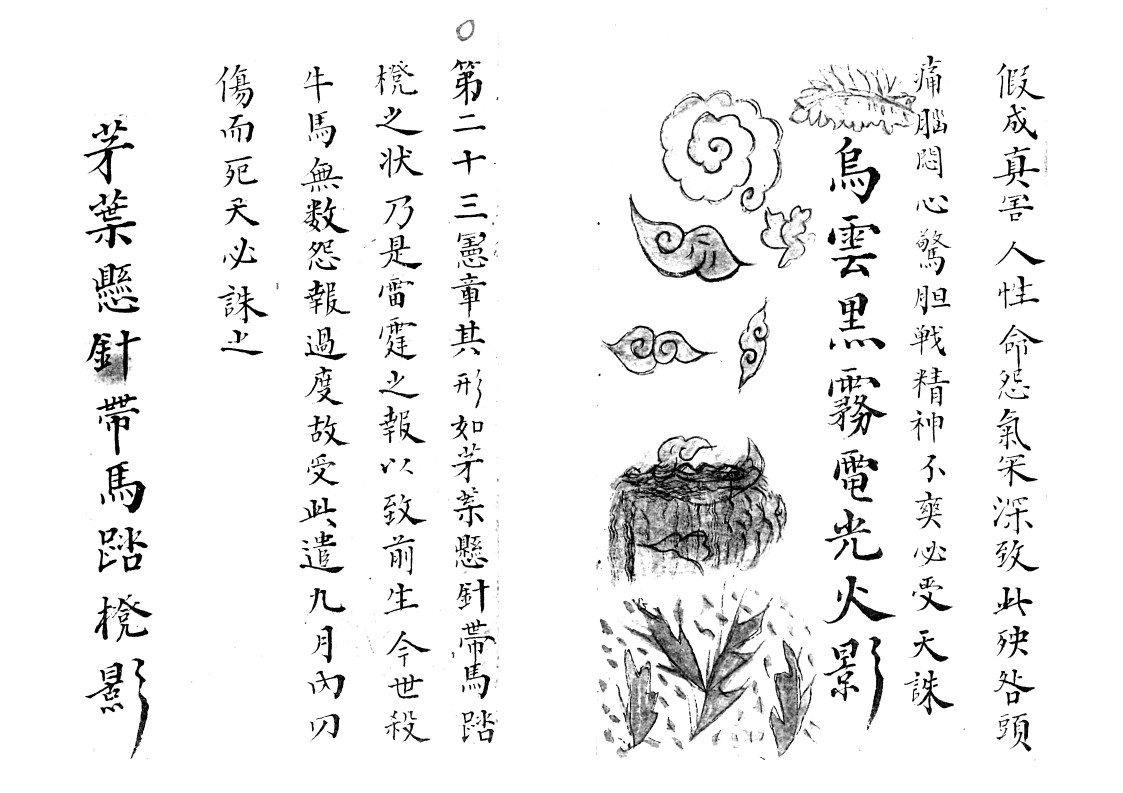 假成真害人性命怨氣罙深致此殃咎頭
痛腦悶心驚胆戦精神不爽必受天誅
烏雲黑霧電光火影
第二十三憲章其形如芽葉懸針帶馬踏
櫈之状乃是雷霆之報以致前生今世殺
牛馬無数怨報過度故受此遣九月內刃
傷而死天必誅之
芽葉懸針帶馬踏櫈影